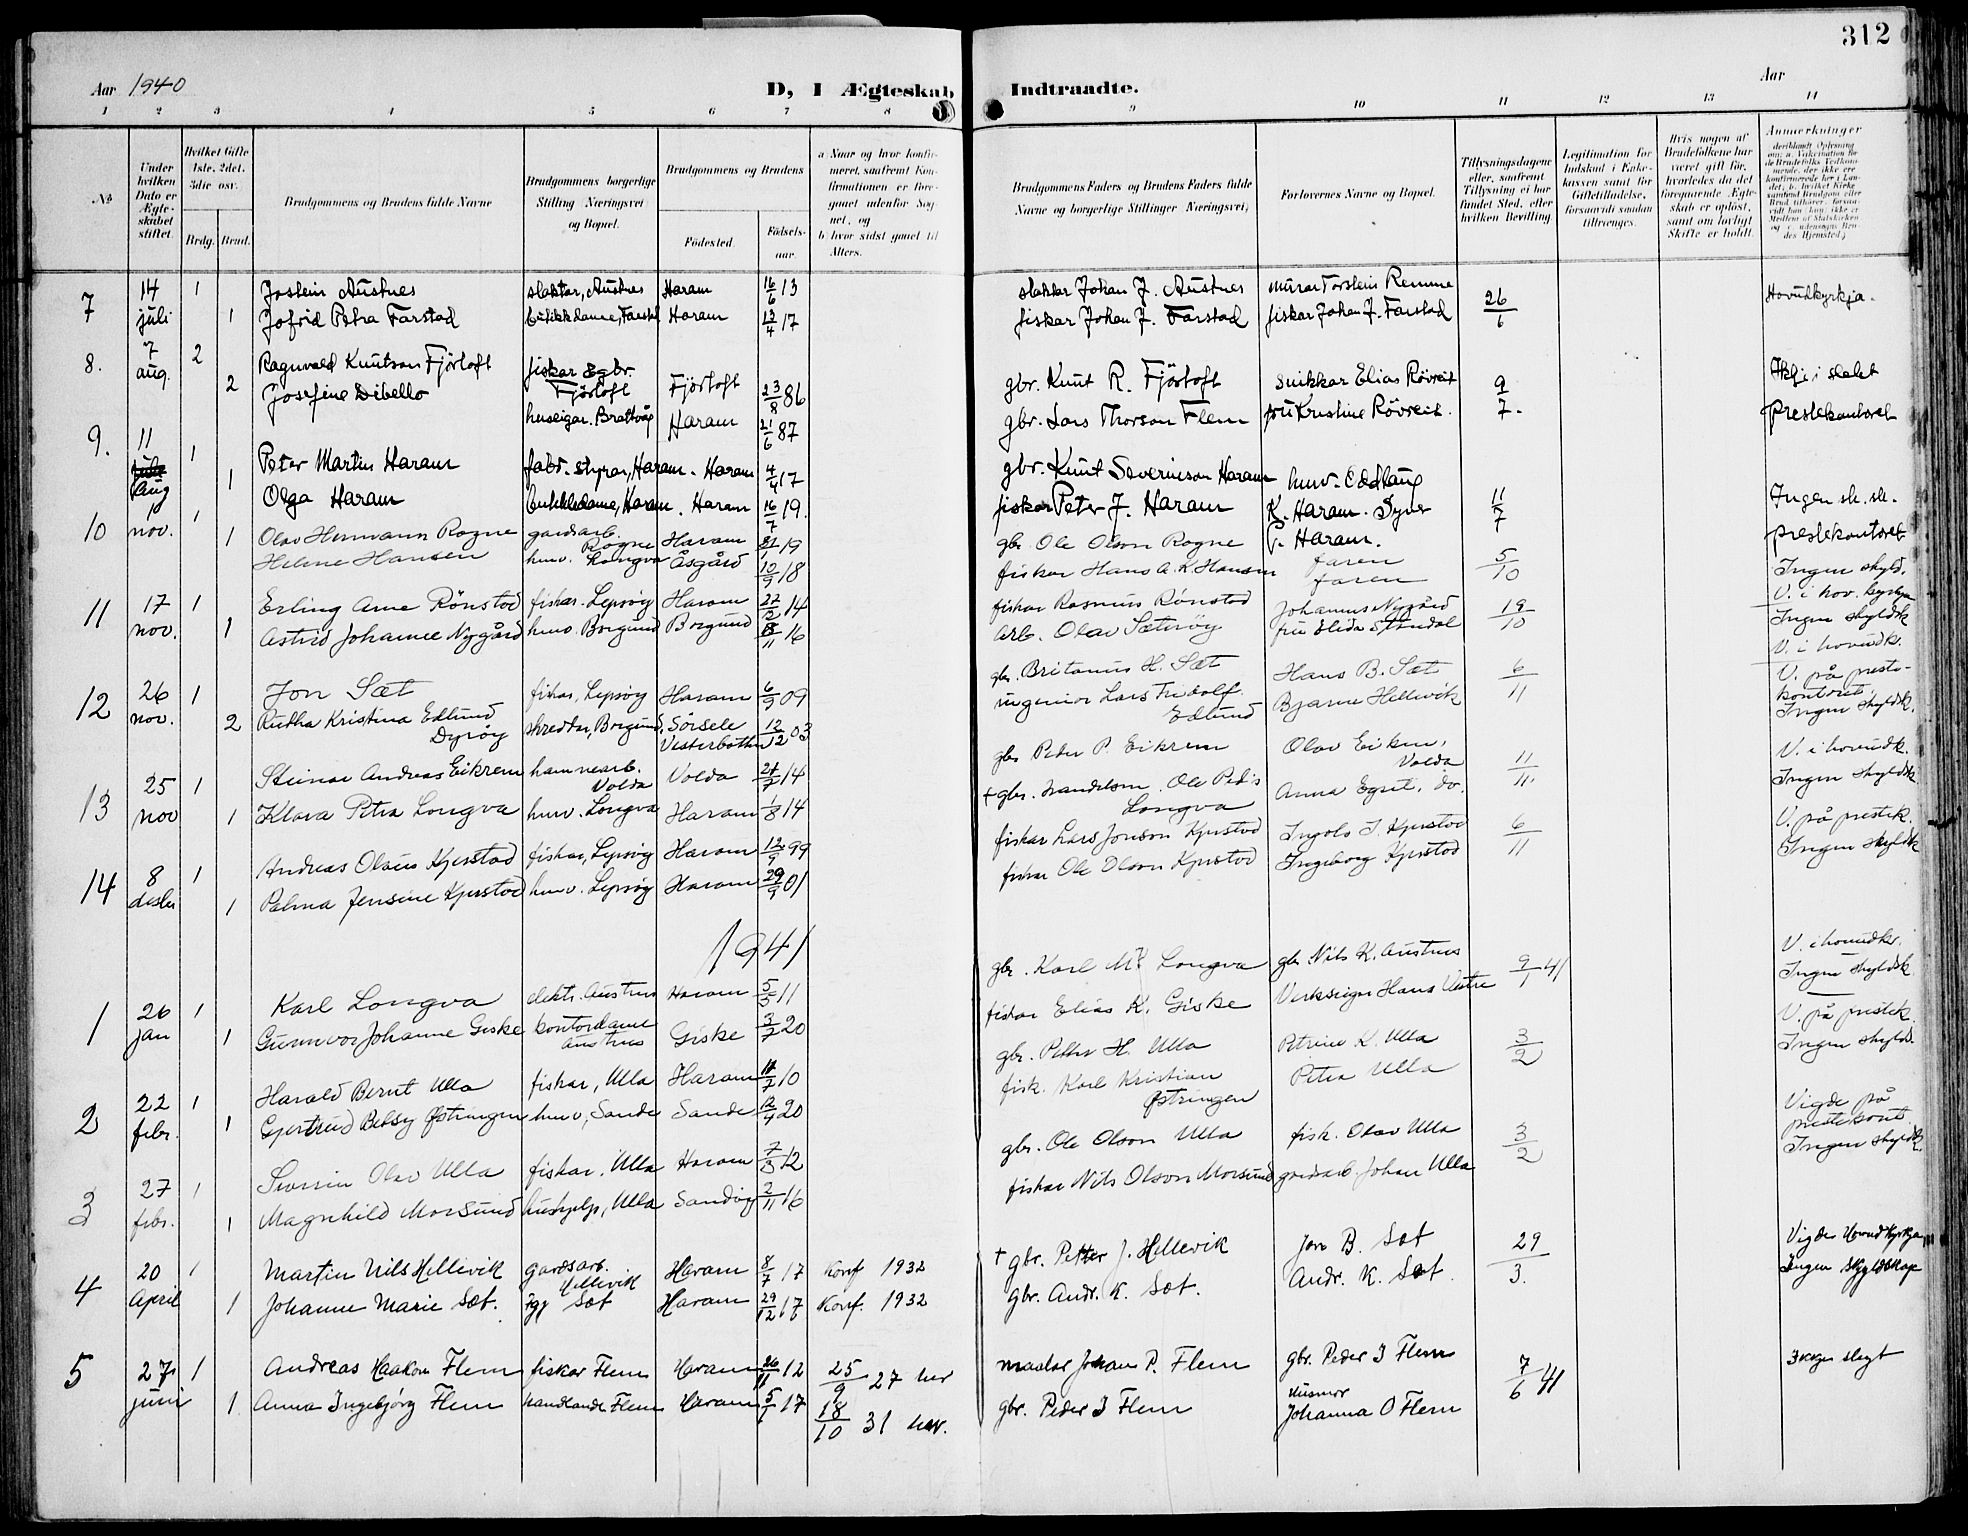 312
Aar 1940
D, I Ægteskab Indtraadte.
Aar
1 2 3 4 5 6 7 8 9 10 11 12 13 14
No
Under hvilken Dato er Ægteskabet stiftet.
Hvilket Gifte 1ste, 2det, 3die osv.
Brdg. Brud.
Brudgommens og Brudens fulde Navne
Brudgommens borgerlige Stilling Næringsvei og Bopæl.
Brudgommens og Brudens
Fødested.
Fødselsaar.
a Naar og hvor konfirmeret, saafremt Konfirmationen er foregaaet udenfor Sognet, og
b hvor sidst gaaet til Alters.
Brudgommens Faders og Brudens Faders fulde Navne og borgerlige Stillinger Næringsvei)
Forlovernes Navne og Bopæl.
Tillysningsdagene eller, saafremt Tillysning ei har fundet Sted, efter hvilken Bevilling.
Legitimation for Indskud i Enkekassen samt for Giftetilladelse, forsaavidt saadan tiltrænges.
Hvis nogen af Brudefolkene har været gift før, hvorledes da det foregaaende Ægteskab er opløst, samt om lovligt Skifte er holdt.
Anmerkninger
7 14 juli 1 Jostein Austnes slaktar, Austnes Haram 16/6 13 slaktar Johan J. Austnes murar Torstein Remme 26/6 Hovudkyrkja.
1 Jofrid Petra Farstad butikkdame, Farstad Haram 13/4 17 fiskar Johan J. Farstad fiskar Johan J. Farstad
8. 7 aug. 2 Ragnvald Knutson Fjörtoft fiskar gbr. Fjörtoft Fjörtoft 23/8 86 gbr. Knut R. Fjörtoft snikkar Elias Rövreit 9/7.
2 Josefine Dibello huseigar. Brattvåg Haram 21/6 87 gbr. Lars Thorson Flem fru Kristine Rövreit. prestekontoret
9. 11 aug 1 Peter Martin Haram fabr. styrar, Haram. Haram 4/4 17 gbr. Knut Severinson Haram 11/7 Ingen sk. sk.
1 Olga Haram butikkdame, Haram. Haram 16/7 19. fiskar Peter J. Haram K. Haram. P. Haram. prestekontoret
10 10 nov. 1 Olav Hermann Rogne gardsarb. Rogne Haram 19 gbr. Ole Olson Rogne faren 5/10 Ingen skyld.
1 Helene Hansen husv. Longva Åsgård 10/9 18 fiskar Hans A. K. Hansen faren V. i hov. kyrkja
11 17 nov. 1 Erling Arne Rönstad fiskar. Lepsöy Haram 14 fiskar Rasmus Rönstad Johannes Nygård 19/10 Ingen skyldsk
1 Astrid Johanne Nygård husv. Borgund Borgund 16 arb. Olav Sæteröy fru Elida Standal V. i hovudk.
12 26 nov. 1 Jon Sæt fiskar, Lepsöy Haram 6/9 09 gbr. Britanus H. Sæt Hans B. Sæt 6/11 V. på prestekontoret.
2 Rutha Kristina Edlund Dyröy skreddar, Borgund, Sörsele Vesterbotten 12/12 03 ingeniör Lars Fridolf Edlund Bjarne Hellevik Ingen skyldsk.
13 25 nov 1 Steinar Andreas Eikrem hamnearb. Volda Volda 14 gbr. Peder P. Eikrem Olav Eikrem, Volda 11/11. V. i hovudk.
1 Klara Petra Longva husv. Longva Haram 1/8 14 † gbr. handelsm. Ole Peds Longva Anna Egset, do. Ingen skyldsk
14 8 desbr 1 Andreas Olaus Kjerstad fiskar, Lepsöy Haram 12/9 99 fiskar Lars Jonson Kjerstad Ingolv I. Kjerstad 6/11 V. på prestek.
1 Palma Jensine Kjerstad husv. Lepsöy Haram 29/9 01 fiskar Ole Olson Kjerstad Ingeborg Kjerstad Ingen skyldsk
1941
1 26 jan 1 Karl Longva elektr. Austnes Haram 5/5 11 gbr. Karl M. Longva gbr. Nils K. Austnes 9/1 41 V. i hovudkr.
1 Gunnvor Johanne Giske kontordame Austnes Giske 3/7 20 fiskar Elias K. Giske Verkseigar Hans Vestre Ingen skyldsk.
2 22 febr. 1 Harald Bernt Ulla fiskar, Ulla Haram 11/7 10 gbr. Petter H. Ulla Petrine K. Ulla 3/2 V. på prestek.
1 Gjertrud Betsy Østringen husv, Sande Sande 12/4 20 fisk. Karl Kristian Østringen Petra Ulla Ingen skyld.
3 27 febr. 1 Severin Olav Ulla fiskar, Ulla Haram 7/3 12 gbr. Ole Olson Ulla fisk. Olav Ulla 3/2 Vigde på prestekont
1 Magnhild Morsund hushjelp, Ulla Sandöy 2/11 16 fiskar Nils Olson Morsund gardsarb. Johan Ulla Ingen skyldsk.
4 20 April 1 Martin Nils Hellevik gardsarb. Hellevik Haram 8/7 17 Konf 1932 † gbr. Petter J. Hellevik Jon B. Sæt 29/3. Vigde Hovudkyrkja
1 Johanne Marie Sæt. Sæt Haram 29/12 17 Konf. 1932 gbr. Andr. K. Sæt. Andr. K. Sæt. Ingen skyldskap
5 27 juni 1 Andreas Haakon Flem fiskar Flem Haram 26/11 12 25/9 27 her maalar Johan P. Flem gbr. Peder I Flem 7/6 41 Ikkje slegt
1 Anna Ingebjørg Flem handlande Flem Haram 5/1 17 18/10 31 her. gbr. Peder I Flem Husmor Johanna O Flem